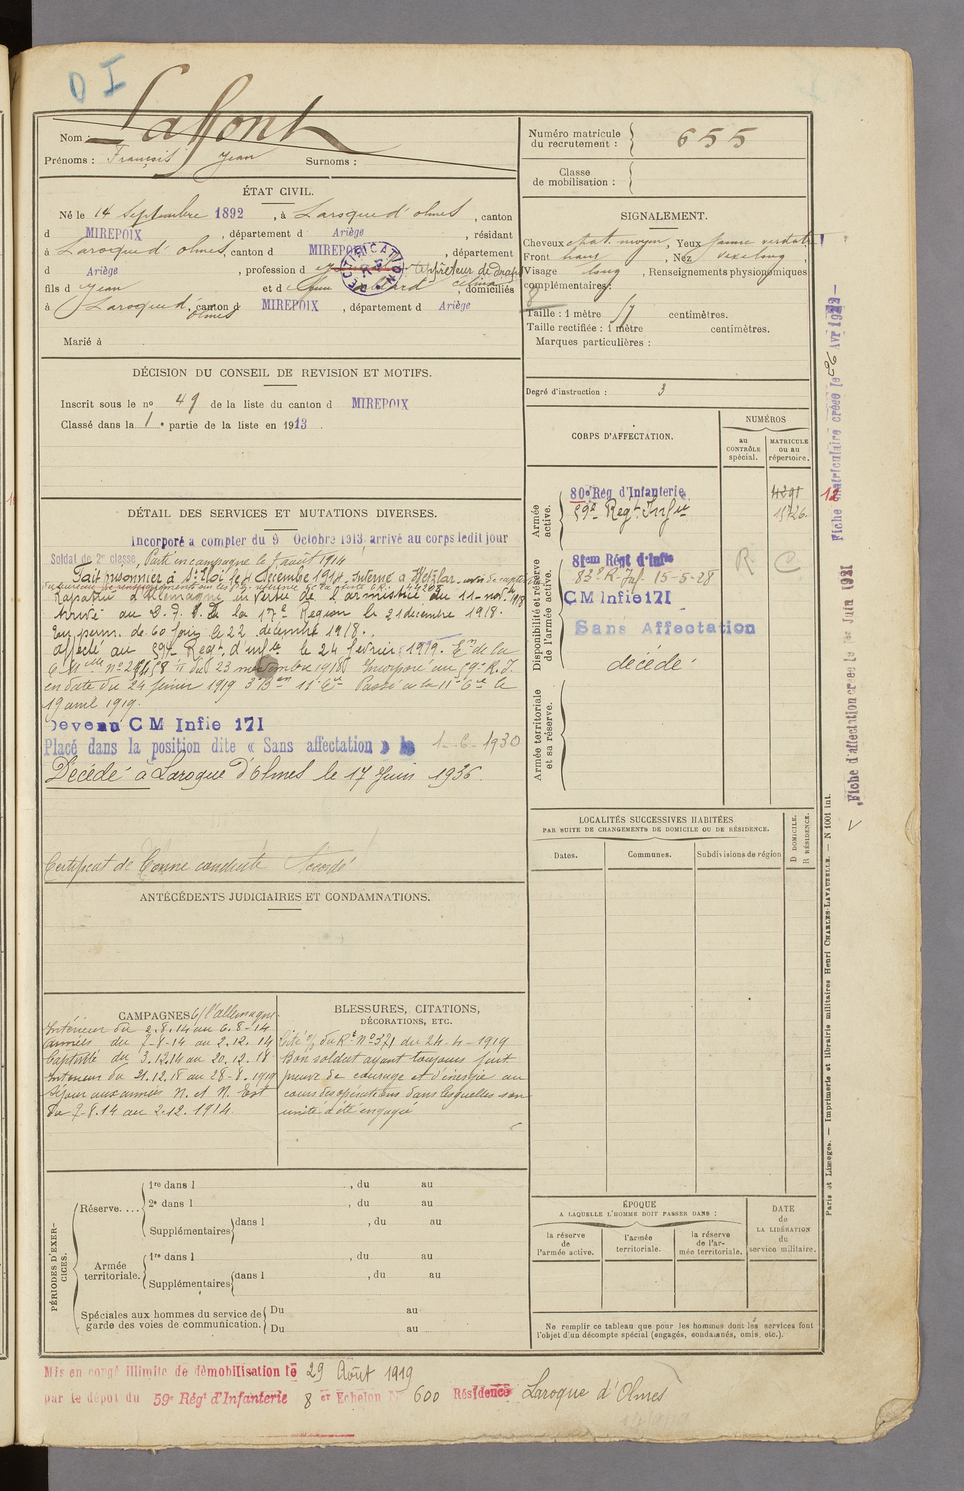 D I
Nom : Laffont
Prénoms : François Jean Surnoms :
Numéro matricule du recrutement : 655
Classe de mobilisation :
ÉTAT CIVIL.
Né le 14 Septembre 1892, à Laroque d'olmes, canton
d MIREPOIX, département d Ariège, résidant
à Laroque d'olmes, canton d MIREPOIX, département
d Ariège, profession d Apprêteur de draps
RECTIFICATION
fils d Jean et d , domiciliés
à Laroque d'olmes, canton d MIREPOIX, département d Ariège
Marié à
SIGNALEMENT.
Cheveux chat. moyen, Yeux jaune verdatre
Front haut, Nez
Visage long, Renseignements physionomiques
complémentaires :
Taille : 1 mètre 57 centimètres.
Taille rectifiée : 1 mètre centimètres.
Marques particulières :
Degré d'instruction : 3
DÉCISION DU CONSEIL DE REVISION ET MOTIFS.
Inscrit sous le nº 49 de la liste du canton d MIREPOIX
Classé dans la 1e partie de la liste en 1913.
CORPS D'AFFECTATION.
NUMÉROS
au CONTRÔLE spécial.
MATRICULE ou au répertoire.
Armée active.
80e Rég d'Infanterie
59e Regt Infie 15726
Disponibilité et réserve de l'armée active.
81em Régt d'Infie
83e R. Inf. 15-5-28 R C
CM Infie 171
Sans Affectation
décédé
Armée territoriale et sa réserve.
DÉTAIL DES SERVICES ET MUTATIONS DIVERSES.
Incorporé a compter du 9 Octobre 1913, arrivé au corps ledit jour
Soldat de 2e classe, Parti en campagne le 7 août 1914
Fait prisonnier à St Eloi le 4 Décembre 1914. Interné à Wetzlar
Rapatrié d'Allemagne en vertu de l'armistice du 11-nov. 1918
Arrivé au D. la 17e Région le 21 décembre 1918.
En perm. de 60 jours le 22 décembre 1918.
affecté au 59e Régt d'infie le 24 février 1919. En de la
C. Mlle nº du 23 novembre 1918 Incorporé au 59e R. I.
en date du 24 février 1919 3e Bon 11e Cie Passé à la 11e Cie le
19 avril 1919.
Devenu CM Infie 171
Placé dans la position dite « Sans affectation » le 1-6-1930
Décédé à Laroque d'Olmes le 17 Juin 1936.
Certificat de bonne conduite Accordé
ANTÉCÉDENTS JUDICIAIRES ET CONDAMNATIONS.
LOCALITÉS SUCCESSIVES HABITÉES
PAR SUITE DE CHANGEMENTS DE DOMICILE OU DE RÉSIDENCE.
Dates. Communes. Subdivisions de région D DOMICILE. R RÉSIDENCE.
CAMPAGNES C/ l'allemagne
Intérieur du 2.8.14 au 6.8.14
armées du 7-8-14 au 2.12.14
Captivité du 3.12.14 au 20.12.18
Intérieur du 21.12.18 au 28-8.1919
Séjour aux armées N. et N. Est
Du 7-8.14 au 2-12.1914
BLESSURES, CITATIONS, DÉCORATIONS, ETC.
Cité o/ du Rt Nº 371 du 24-4-1919
Bon soldat ayant toujours fait
preuve de courage et d'énergie au
cours des opérations dans lesquelles son
unité a été engagée
PÉRIODES D'EXERCICES.
Réserve.... 1re dans l , du au
2e dans l , du au
Supplémentaires dans l , du au
Armée territoriale. 1re dans l , du au
Supplémentaires dans l , du au
Spéciales aux hommes du service de garde des voies de communication. Du au
Du au
ÉPOQUE
A LAQUELLE L'HOMME DOIT PASSER DANS :
la réserve de l'armée active.
l'armée territoriale.
la réserve de l'armée territoriale.
DATE de LA LIBÉRATION du service militaire.
Ne remplir ce tableau que pour les hommes dont les services font
l'objet d'un décompte spécial (engagés, condamnés, omis, etc.).
Mis en congé illimité de démobilisation le 29 Août 1919
par le dépôt du 59e Régt d'Infanterie 8 er Echelon N 600 Résidence Laroque d'Olmes
Fiche matriculaire créée le 26 Avr
Fiche d'affectation créée le 1er Juin 1921
Paris et Limoges. — Imprimerie et librairie militaires Henri CHARLES-LAVAUZELLE. — N 1001 int.